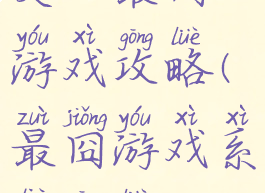 yóu xì gōng lüè
游戏攻略(
zuì jiǒng yóu xì xì
最囧游戏系